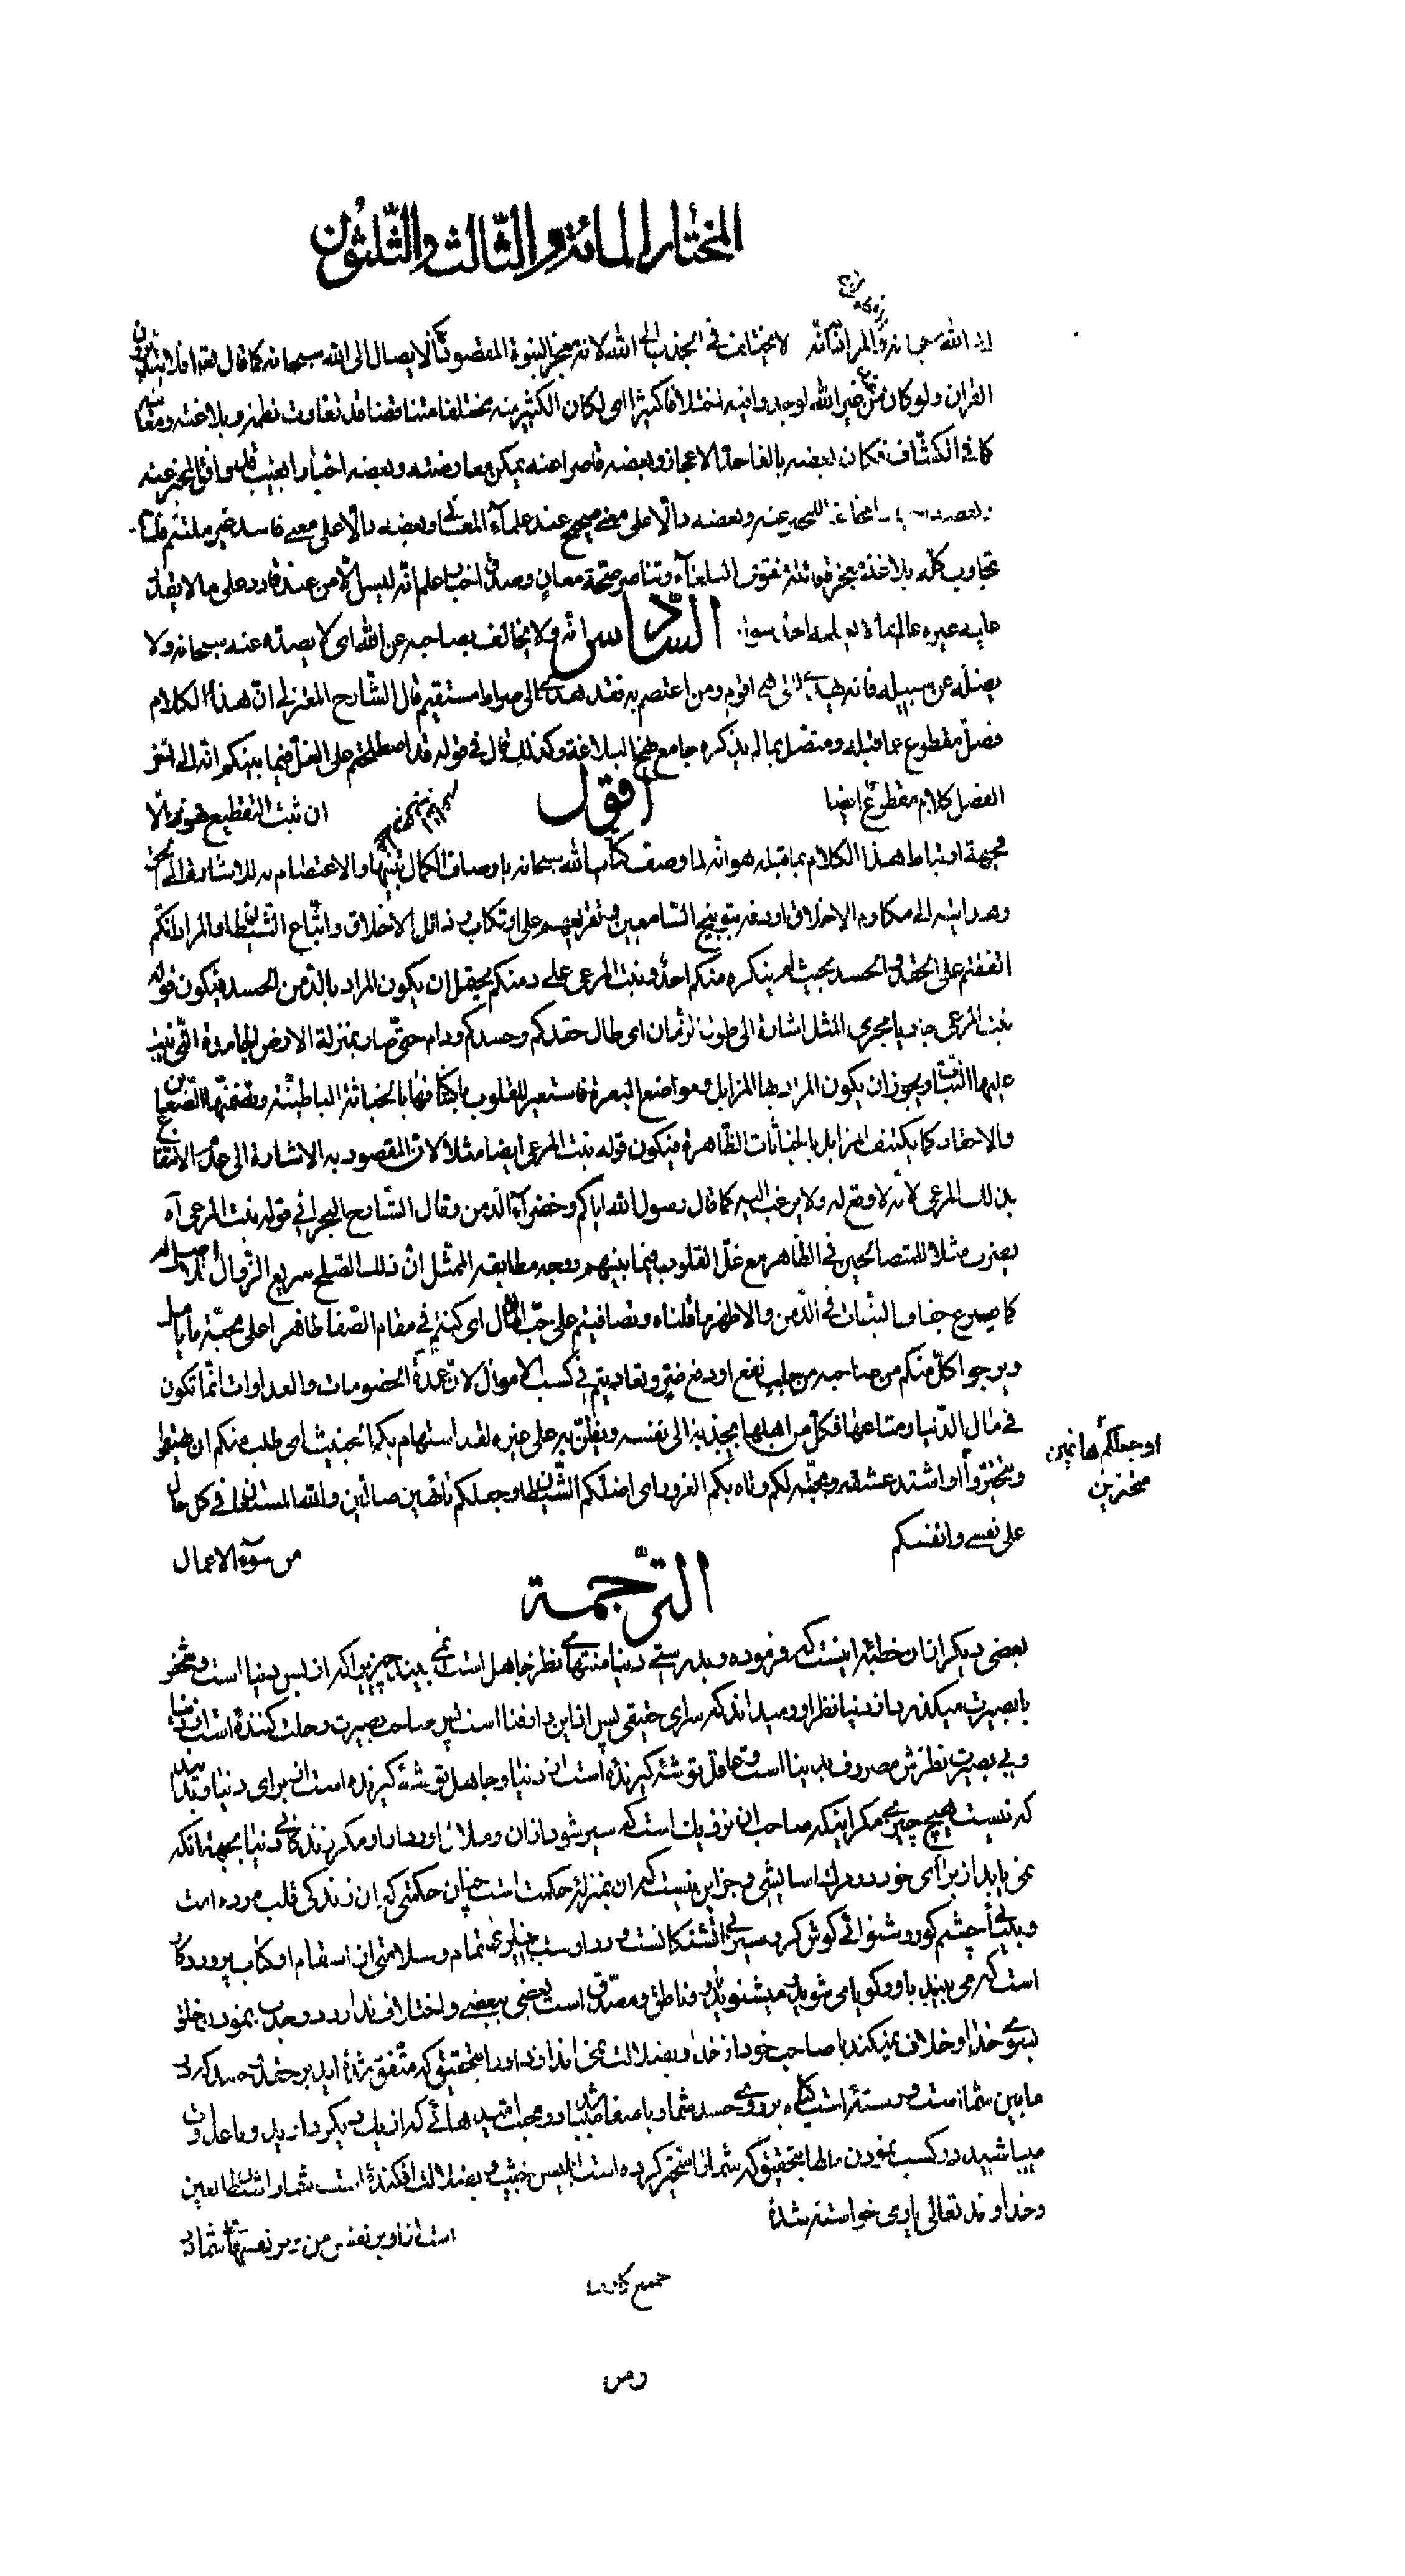 المختار المائة والثالث والثلثون
الله سبحانه والمراد أنه لا يختلف في الجذب إلى الله لأنه معجز النبوة المقصود الايصال الى الله سبحانه كما قال تعالى افلا يتدبرون
القران ولو كان من عند غير الله لوجدوا فيه اختلافا كثيرا اى لكان الكثير منه مختلفا متناقضا قد تفاوت نظمه وبلاغته ومعانيه
كما في الكشاف فكان بعضه بالغا حد الاعجاز وبعضه قاصرا عنه يمكن معارضته وبعضه اخبارا بغيب قد وافق المخبر عنه
وبعضه اخبارا مخالفا للمخبر عنه وبعضه دالا على معنى صحيح عند علماء المعاني وبعضه دالا على معنى فاسد غير ملتئم فلما
تجاوب كله بلاغة معجزة فائقة لقوى البلغاء وتناصر صحة معان وصدق اخبار علم انه ليس الا من عند قادر على ما لا يقدر
عليه غيره عالم بما لا يعلمه احد سواه السادس انه ولا يخالف بصاحبه عن الله اى لا يصده عنه سبحانه ولا
يضله عن سبيله فانه يهدى للتي هى اقوم ومن اعتصم به فقد هدى الى صراط مستقيم قال الشارح المعتزلي ان هذا الكلام
فصل مقطوع عما قبله ومتصل بما لم يذكره جامع نهج البلاغة وكذلك قال في قوله قد اصطلحتم على الغل فيما بينكم انه الى اخر
الفصل كلام مقطوع ايضا اقول ان ثبت التقطيع فهو والا
فجهة ارتباط هذا الكلام بما قبله هو انه لما وصف كتاب الله سبحانه باوصاف الكمال تنبيها والاعتصام به للارشاد الى
وهدايته الى مكارم الاخلاق اردفه بتوبيخ السامعين وتقريعهم على ارتكاب رذائل الاخلاق واتباع الشيطان والمراد انكم
اتفقتم على الحقد والحسد بحيث لم ينكره منكم احد ونبت المرعى على دمنكم يحتمل ان يكون المراد بالدمن الحسد فيكون قوله
نبت المرعى جاريا مجرى المثل اشارة الى طول الزمان اى طال حقدكم وحسدكم ودام حتى صار بمنزلة الارض الجامدة التي نبت
عليها النبات ويجوز ان يكون المراد بها المزابل ومواضع البعرة فاستعير للقلوب باكتنافها بالخباثة الباطنة وتضمنها الضغاين
والاحقاد كما يكتنف المزابل بالخباثات الظاهرة فيكون قوله نبت المرعى ايضا مثلا لان المقصود به الاشارة الى عدم الانتفاع
بذلك المرعى لانه لا وقع له ولا يرغب اليه كما قال رسول الله اياكم وخضراء الدمن وقال الشارح البحراني في قوله نبت المرعى اه
يضرب مثلا للمتصالحين في الظاهر مع غل القلوب فيما بينهم ووجه مطابقة الممثل ان ذلك الصلح سريع الزوال لا اصل له
كما يسرع جفاف النبات في الدمن والاظهر ما قلناه وتصافيتم على حب الامال اى كنتم في مقام الصفا ظاهرا على محبة ما يامله
ويرجوا كل منكم من صاحبه من جلب نفع او دفع ضر وتعاديتم في كسب الاموال لان عمدة الخصومات والعداوات انما تكون
في مال الدنيا ومتاعها فكل من اهلها يجذبه الى نفسه ويظن به على غيره لقد استهام بكم الخبيث اى طلب منكم ان تهيموا
وتتحيروا او اشتد عشقه ومحبته لكم وتاه بكم الغرور اى اضلكم الشيطان وجعلكم تائهين ضالين والله المستعان في كل حال
او جعلكم هائمين
متحيرين
على نفسى وانفسكم من سوء الاعمال
الترجمة
بعضى ديكر ازان خطبه اينست كه فرموده وبدرستى دنيا منتهاى نظر جاهل است نمى بيند چيزيرا كه از پس دنيا است وشخص
با بصيرت ميكذرد از دنيا نظر او وميداند كه سراى حقيقى پس از اين دار فنا است پس صاحب بصيرت رحلت كننده است از دنيا
وبي بصيرت نظرش مصروف بدنيا است وعاقل توشه كيرنده است از دنيا وجاهل توشه كيرنده است از براى دنيا وبدانيد
كه نيست هيچ چيزى مكر اينكه صاحب ان نزديك است كه سير شود ازان وملال اورد از او مكر زندكاني دنيا بجهة انكه
نمى يابد از براى خود در مرك اسايشى وجز اين نيست كه ان بمنزله حكمت است چنان حكمتى كه ان زندكى قلب مرده است
وبينائى چشم كور وشنوائى كوش كر وسيرابى تشنكانست ودر اوست بى نيازى تمام وسلامتى از اسقام او كتاب پروردكار
است كه مى بينيد باو وكويا مى شويد وميشنويد باو وناطق ومصدق است بعضى ببعضى واختلاف ندارد در جذب نمودن خلق
بسوى خدا وخلاف نميكند با صاحب خود از خدا وبضلالت نمى اندازد او را بتحقيق كه متفق شده ايد بر حقد وحسد كه در
ما بين شما است ورسته است كياه بر روى حسد شما وبا صفا شديد بر محبت اميدهائى كه از يك ديكر داريد وبا عداوت
ميباشيد در كسب نمودن مالها بتحقيق كه شما را متحير كرده است ابليس خبيث وبضلالت افكنده است شما را شيطان لعين
وخداوند تعالى يارى خواسته شده است از او بر نفس من وبر نفسهاى شما در
جميع كارها
ومن